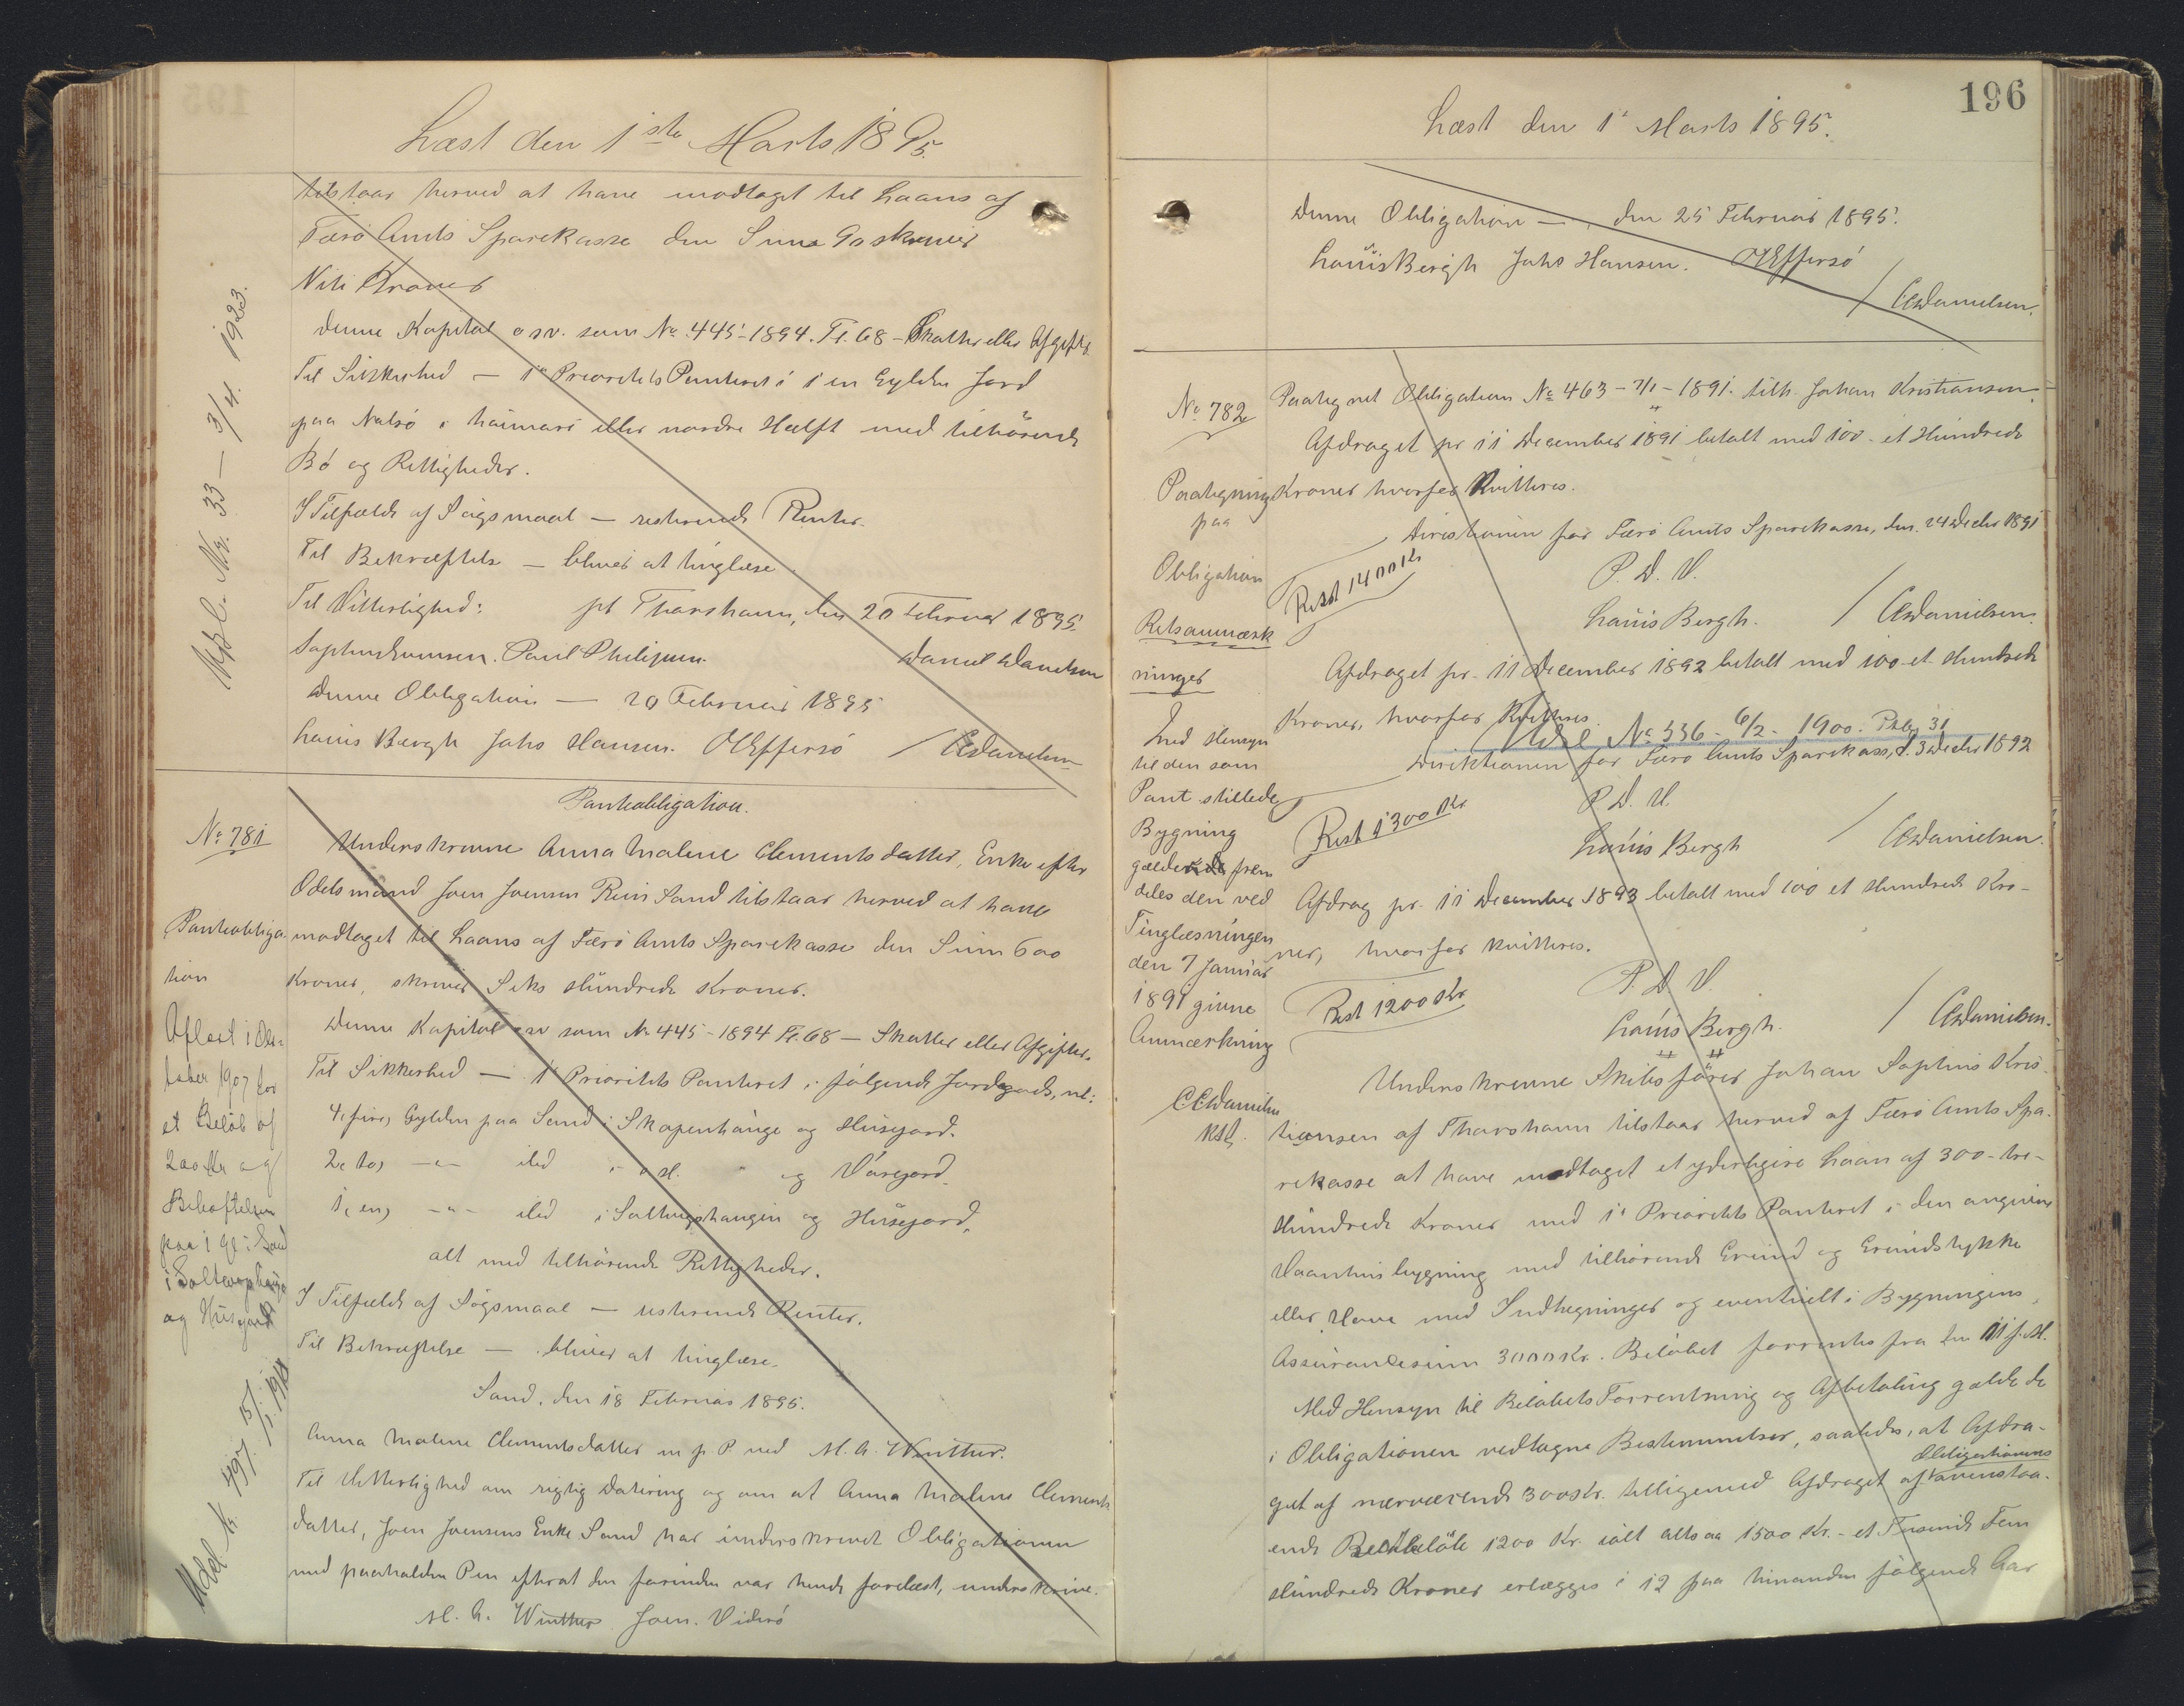 Læst den 1ste Marts 1895.
tilstaar herved at have modtaget til Laans af
Færø Amts Sparekasse den Sum 90 skriver
Niti Kroner
Denne Kapital osv. som No 445-1894. Fl. 68 - Skatter eller Afgifter
Til Sikkerhed — 1e Prioritets Panteret i 1 en Gylden Jord
paa Nolsö i haimari eller nordre Hælft med tilhörende
Bö og Rettigheder.
I Tilfælde af Sögsmaal — resterende Renter.
Til Bekræftelse — bliver at tinglæse
Til Vitterlighed: pt Thorshavn, den 20 Februar 1895.
Sophus Poul Philipsen. Daniel Danielsen
Denne Obligation — 20 Februar 1895
Louis Bergh Johs Hansen. OEffersö / CCDanielsen
Afl. Nr. 33 — 3/4. 1923.
Panteobligation.
No 781
Panteobliga-
tion
Underskrevne Anna Malene Clementsdatter, Enke efter
Odelsmand Joen Joensen Sand tilstaar herved at have
modtaget til Laans af Færö Amts Sparekasse den Sum 600
Kroner, skriver Seks Hundrede Kroner.
Denne Kapital osv som No 445-1894 Fl. 68 — Skatter eller Afgifter.
Til Sikkerhed — 1e Prioritets Panteret i fölgende Jordegods, nl:
4, fire, Gylden paa Sand i Skapenhange og Húsegord.
2, to, -"- ibd i og Váregord.
1, en, -"- ibd i Saltvigshangin og Húsegord,
alt med tilhörende Rettigheder.
I Tilfælde af Sögsmaal — resterende Renter.
Til Bekræftelse — bliver at tinglæse.
Sand, den 18 Februar 1895.
Anna Malene Clementsdatter m. p. P. ved M. A. Winther.
Til Vitterlighed om rigtig Datering og om at Anna Malene Clements
datter, Joen Joensens Enke Sand har underskrevet Obligationen
med paaholden Pen efterat den forinden var hende forelæst, underskrive.
M. A. Winther Joen. Viderö
Aflæst i Ok-
tober 1907 for
et Belöb af
200 Kr og
Behæftelsen
paa 1 gl i Sand
i
og Húsegord
Udsl No 497. 15/1. 1910
196
Læst den 1' Marts 1895.
Denne Obligation — den 25 Februar 1895.
Louis Bergh Johs Hansen. OEffersö
/ CCDanielsen.
No 782
Paategning
paa
Obligation
Retsanmærk
ninger
Med Hensyn
til den som
Pant stillede
Bygning
gælder frem
deles den ved
Tinglæsningen
den 7 Januar
1891 givne
Anmærkning
CCDanielsen
Kst.
Paategnet Obligation No 463 - 7/1 - 1891. tilh. Johan Kristiansen.
Afdraget pr 11 December 1891 betalt med 100 - et Hundrede
Kroner hvorfor Kvitteres.
Direktionen for Færö Amts Sparekasse, den. 24 Decbr 1891
Rest 1400 Kr
P. D. V.
Louis Bergh. / CCDanielsen.
Afdraget pr. 11 December 1892 betalt med 100 - et Hundrede
Kroner, hvorfor Kvitteres.
Udsl No 336 - 6/2 - 1900. Pkt. 31
Direktionen for Færö Amts Sparekasse, d. 3 Decbr 1892
P. D. V.
Rest 1300 Kr
Louis Bergh / CCDanielsen.
Afdrag pr. 11 December 1893 betalt med 100 et Hundrede Kro-
ner, hvorfor kvitteres.
P. D. V.
Rest 1200 Kr
Louis Bergh. / CCDanielsen.
Underskrevne Skibsförer Johan Sophus Kris-
tiansen af Thorshavn tilstaar herved af Færö Amts Spa-
rekasse at have modtaget et yderligere Laan af 300 - tre -
Hundrede Kroner med 1' Prioritets Panteret i den angivne
Vaanhusbygning med tilhörende Grund og Grundstykke
eller Have med Indhegninger og eventuelt i Bygningens
Assurancesum 3000 Kr. Belöbet forrentes fra den 11 f. M.
Med Hensyn til Belöbets Forrentning og Afbetaling gælde de
i Obligationen vedtagne Bestemmelser, saaledes, at Afdra-
Obligationens
get af nærværende 300 Kr. tilligemed Afdraget af ovenstaa-
ende Restbelöb 1200 Kr. ialt altsaa 1500 Kr. - et Tusende Fem
Hundrede Kroner erlægges i 12 paa hinanden fölgende Aar